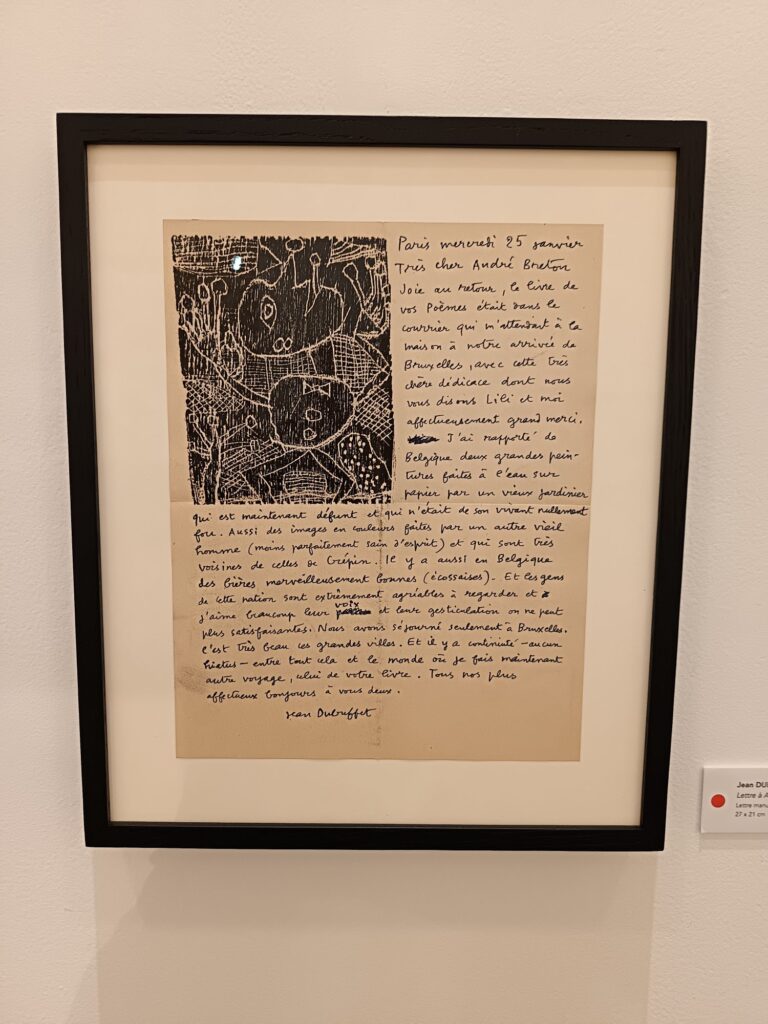 Paris mercredi 25 janvier
Très cher André Breton
Joie au retour, le livre de
vos Poèmes était dans le
courrier qui m'attendait à la
maison à notre arrivée de
Bruxelles, avec cette très
chère dédicace dont nous
vous disons Lili et moi
affectueusement grand merci.
J'ai rapporté de
Belgique deux grandes pein-
tures faites à l'eau sur
papier par un vieux jardinier
qui est maintenant défunt et qui n'était de son vivant nullement
fou. Aussi des images en couleurs faites par un autre vieil
homme (moins parfaitement sain d'esprit) et qui sont très
voisines de celles de Crépin. Il y a aussi en Belgique
des bières merveilleusement bonnes (écossaises). Et les gens
de cette nation sont extrêmement agréables à regarder et
j'aime beaucoup leur voix et leur gesticulation on ne peut
plus satisfaisantes. Nous avons séjourné seulement à Bruxelles.
C'est très beau ces grandes villes. Et il y a continuité - aucun
hiatus - entre tout cela et le monde où je fais maintenant
autre voyage, celui de votre livre. Tous nos plus
affectueux bonjours à vous deux.
Jean Dubuffet
Jean DU
Lettre à A
Lettre manu
27 x 21 cm